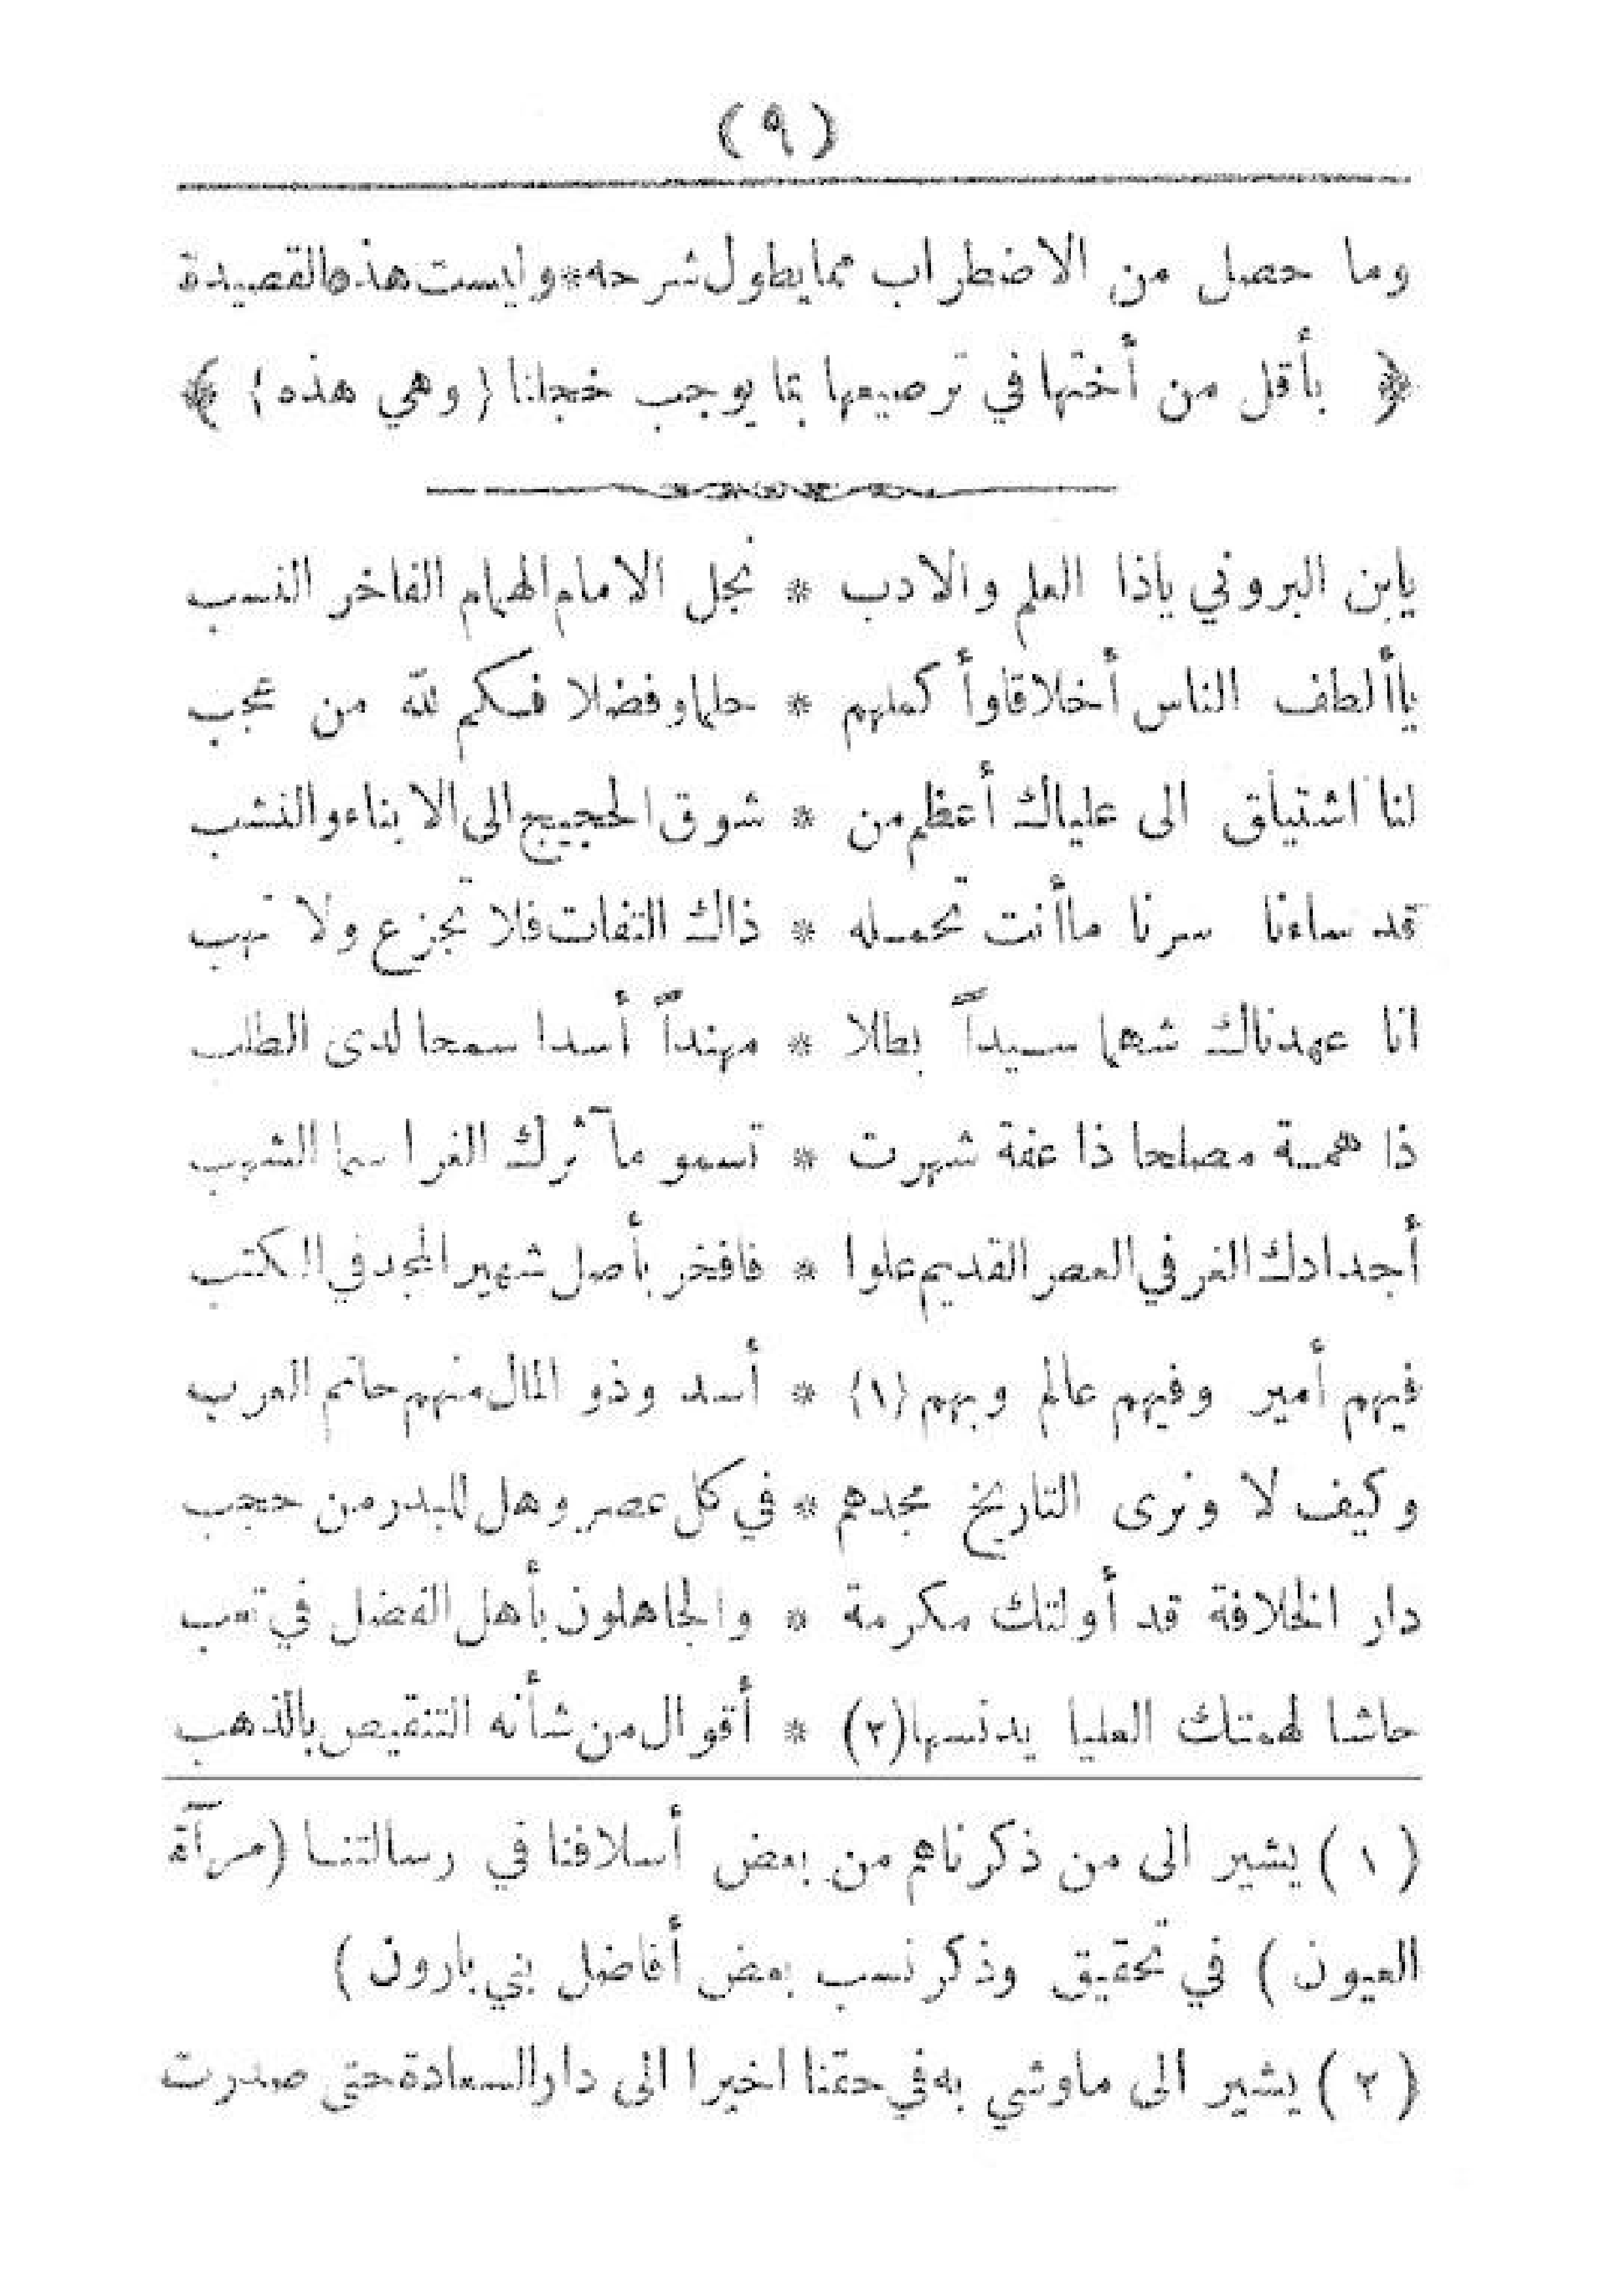 (٩)
وما حصل من الاضطراب مما يطول شرحه * وليست هذه القصيدة
﴿ بأقل من أختها في ترصيعها بما يوجب خجلنا (وهي هذه) ﴾
يابن البروني ياذا العلم والادب * نجل الامام الهمام الفاخر النسب
ياألطف الناس أخلاقا وأكملهم * حلما وفضلا فكم لله من عجب
لنا اشتياق الى علياك أعظم من * شوق الحجيج الى الابناء والنشب
قد ساءنا سرنا ماأنت تحمله * ذاك التفات فلا تجزع ولا تهب
انا عهدناك شهما سيداً بطلا * مهنداً أسدا سمحا لدى الطلب
ذا همة مصلحا ذا عفة شهرت * تسمو مآثرك الغرا سما الشهب
أجدادك الغر في العصر القديم علوا * فافخر بأصل شهير المجد في الكتب
فيهم أمير وفيهم عالم وبهم (١) * أسد وذو المال منهم حاتم العرب
وكيف لا ونرى التاريخ مجدهم * في كل عصر وهل للبدر من حجب
دار الخلافة قد أولتك مكرمة * والجاهلون بأهل الفضل في تعب
حاشا لهمتك العليا يدنسها (٢) * أقوال من شأنه التنقيص بالذهب
(١) يشير الى من ذكرناهم من بعض أسلافنا في رسالتنا (مرآة
العيون) في تحقيق وذكر نسب بعض أفاضل بني بارون)
(٢) يشير الى ماوشي به في حقنا اخيرا الى دار السعادة حتى صدرت